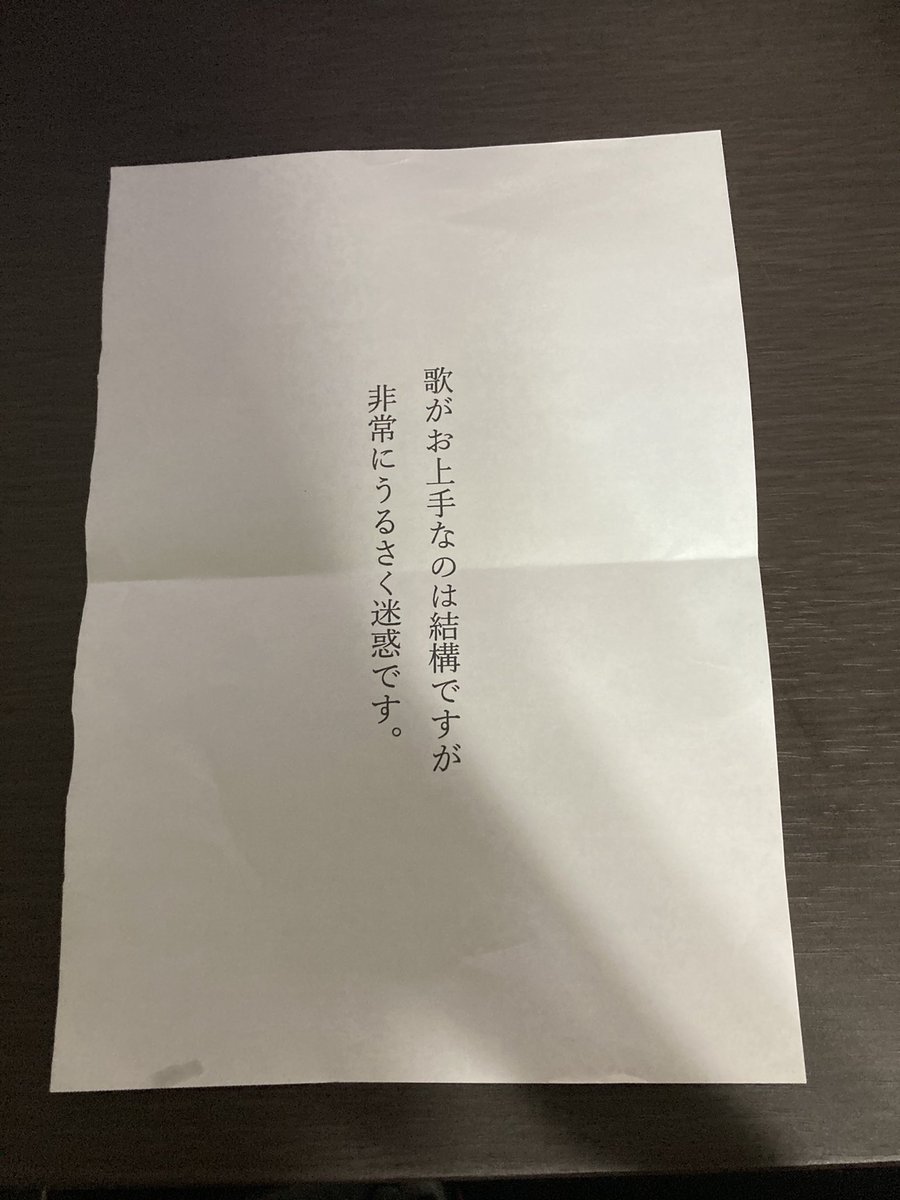 歌がお上手なのは結構ですが
非常にうるさく迷惑です。